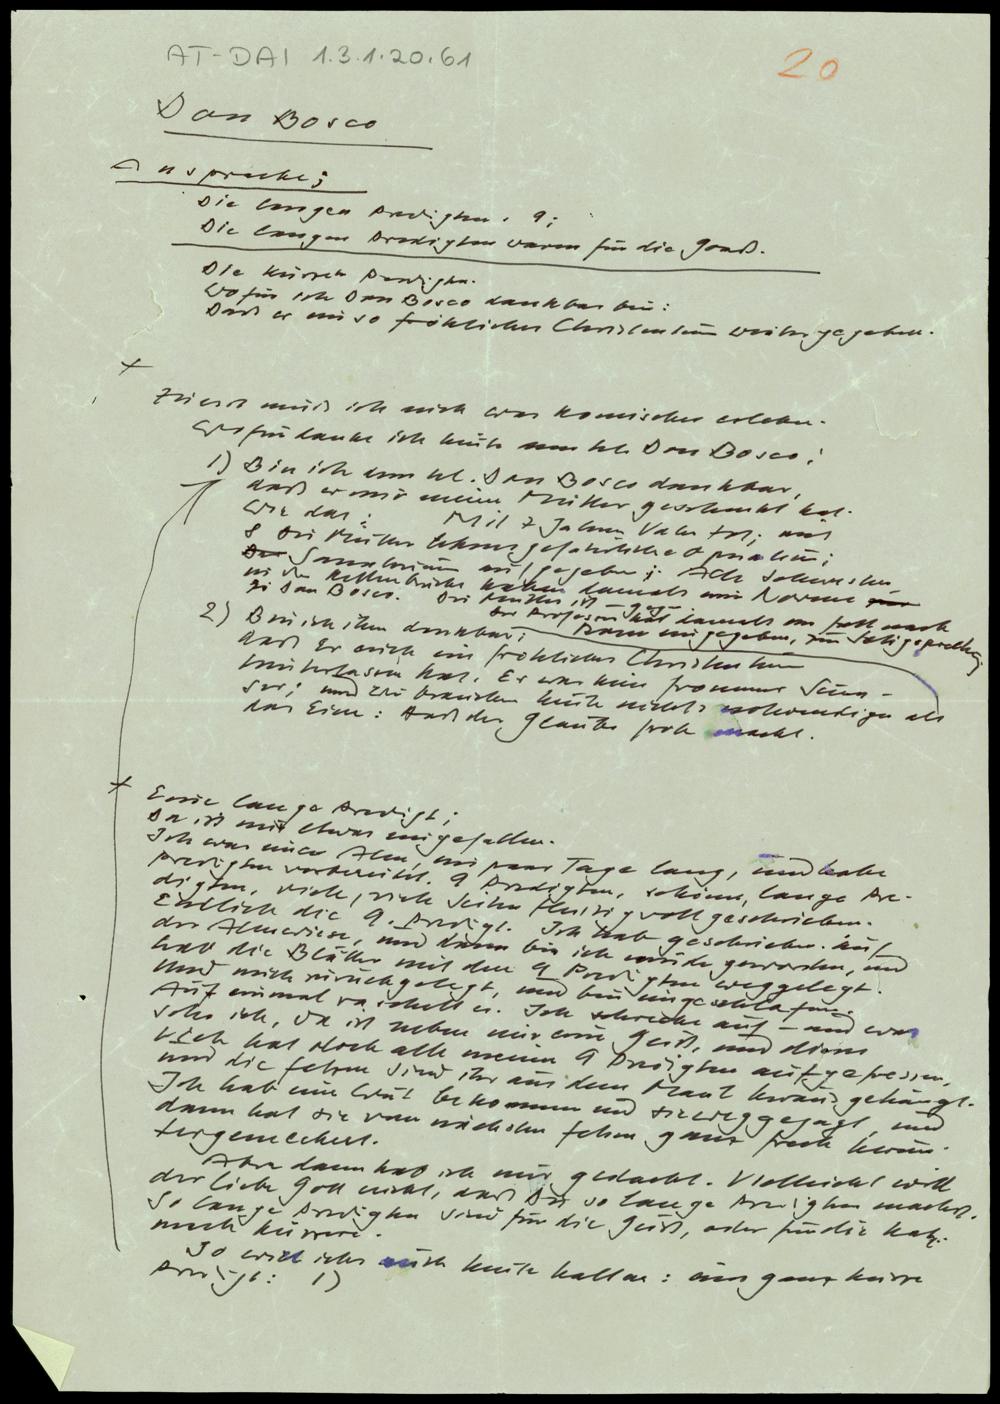 AT-DAI 1.3.1.20.61
20
Don Bosco
Ansprache;
Die langen Predigten. 9;
Die langen Predigten waren für die Goaß.
Die kürzere Predigten.
Wofür ich Don Bosco dankbar bin:
Daß er uns so fröhliches Christentum weitergegeben.
Zuerst muß ich euch was komisches erzählen.
Wofür danke ich heute dem hl. Don Bosco;
1) Bin ich dem hl. Don Bosco dankbar,
daß er mir meine Mutter geschenkt hat.
Wie das: Mit 2 Jahren Vater tot; mit
8 Die Mutter lebensgefährliche Operation;
Sanatorium aufgegeben; Alle Schwestern
in der Kettenbrücke haben damals eine Novene
zu Don Bosco. Die Mutter ist
Der Professor hat damals
eingegeben, zur Seligsprechung
2) Bin ich ihm dankbar;
daß Er euch ein fröhliches Christentum
hinterlassen hat. Er war kein frommer
und wir brauchen heute nichts notwendiger als
das Eine: Daß der Glaube froh macht.
Eine lange Predigt;
Da ist mir etwas eingefallen.
Ich war einer Alm, ein paar Tage lang, und habe
Predigten vorbereitet. 9 Predigten, schöne, lange Pre-
digten, viele, viele Seiten fleissig vollgeschrieben.
Endlich die 9. Predigt. Ich hab geschrieben. Auf
der Almwiese, und dann bin ich müde geworden, und
hab die Blätter mit den 9 Predigten weggelegt.
Und mich zurückgelegt, und bin eingeschlafen.
Auf einmal raschelt es. Ich schrecke auf – und was
seh ich, da ist neben mir eine Geiß, und dieses
Vieh hat doch alle meine 9 Predigten aufgefressen,
und die fetzen sind ihr aus dem Maul herausgehängt.
Ich hab eine Wut bekommen und sie weggejagt, und
dann hat sie vom nächsten felsen ganz frech herun-
tergemeckert.
Aber dann hab ich mir gedacht. Vielleicht will
der liebe Gott nicht, daß Du so lange Predigten machst.
So lange Predigten sind für die Geiß, oder für die Katz.
mach kürzere.
So will ichs auch heute halten: eine ganz kurze
Predigt: 1)